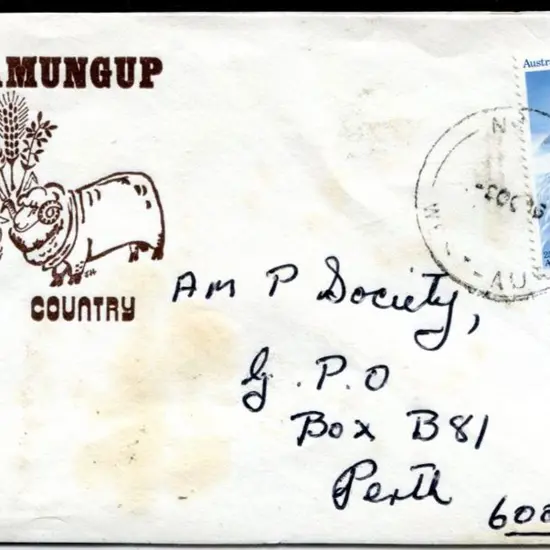 AMUNGUP
COUNTRY
Austr
Am P Society,
G.P.O
Box B81
Perth